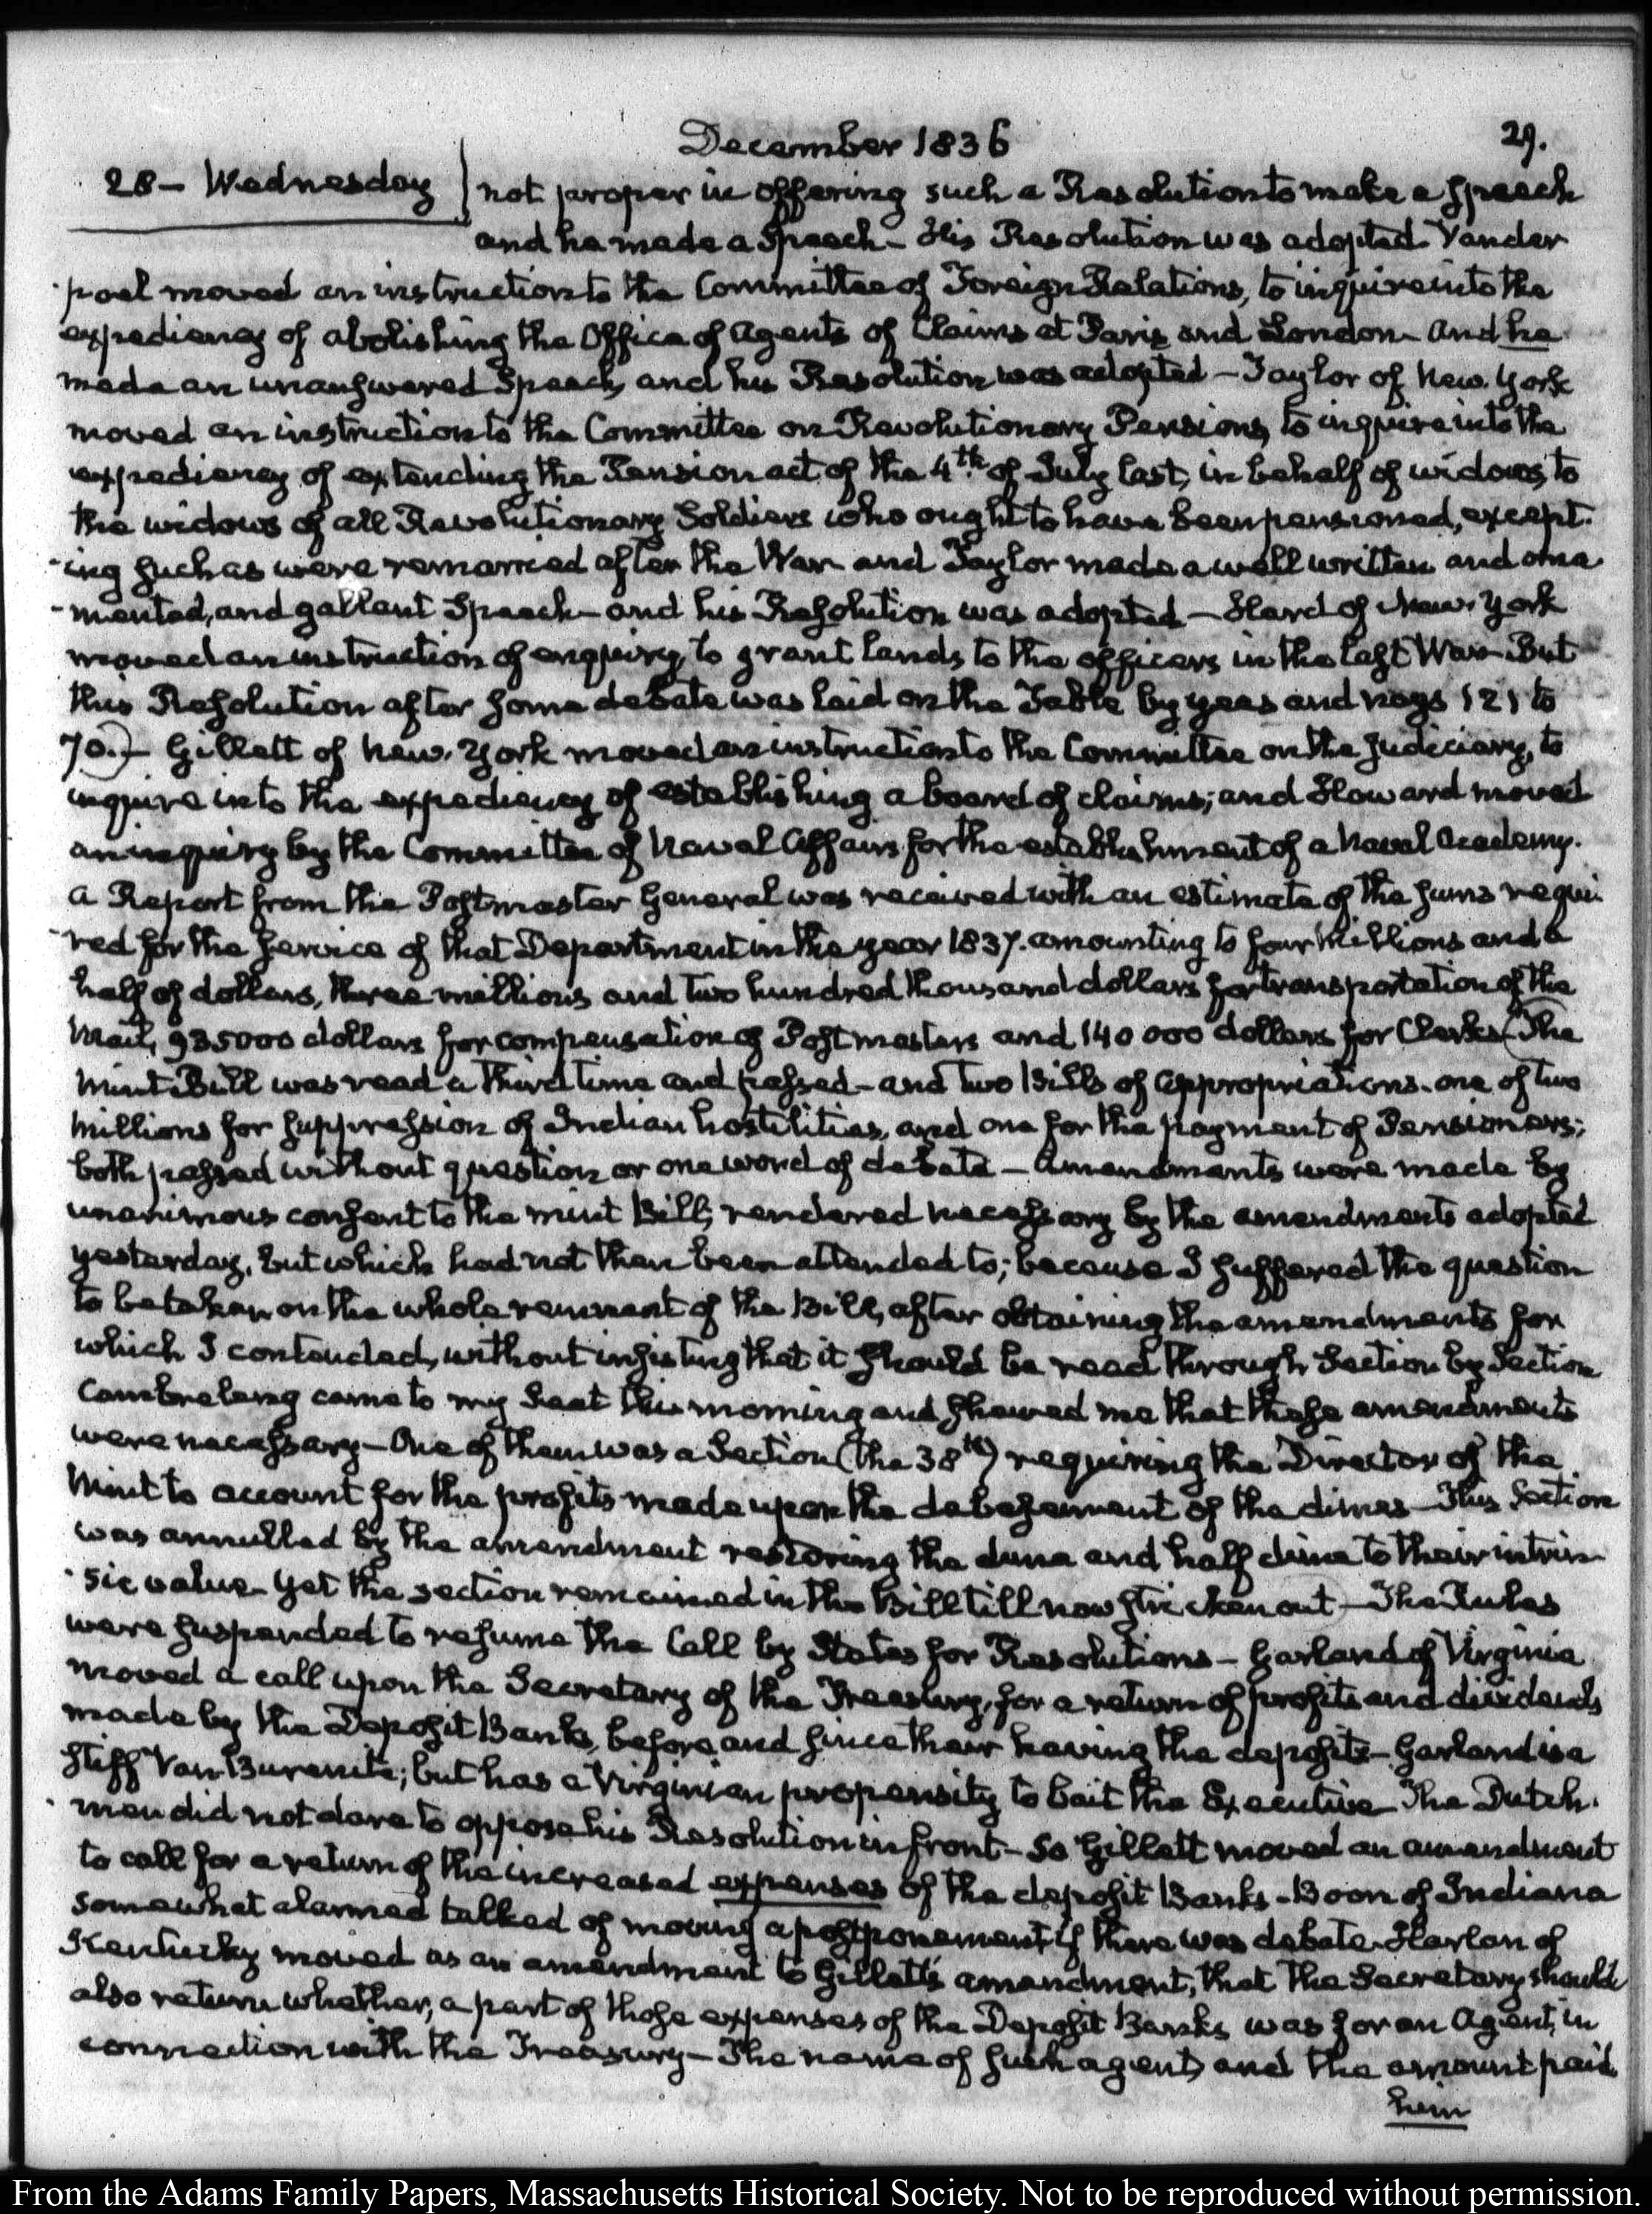 December 1836
29.
28 – Wednesday
not proper in offering such a Resolution to make a Speech
and he made a Speech – His Resolution was adopted. Vander
poel moved an instruction to the Committee of Foreign Relations, to inquire into the
expediency of abolishing the Office of Agents of Claims at Paris and London – And he
made an unanswered Speech, and his Resolution was adopted – Taylor of New-York
moved an instruction to the Committee on Revolutionary Pensions, to inquire into the
expediency of extending the Pension act of the 4th. of July last, in behalf of widows, to
the widows of all Revolutionary Soldiers who ought to have been pensioned, except-
-ing such as were remarried after the War and Taylor made a well written and orna
-mented, and gallant Speech – and his Resolution was adopted – Hard of New-York
moved an instruction of enquiry, to grant lands to the officers in the last War – But
this Resolution after some debate was laid on the Table by yeas and nays 121 to
70.– Gillett of New-York moved an instruction to the Committee on the Judiciary, to
inquire into the expediency of establishing a board of claims; and Howard moved
an inquiry by the Committee of Naval Affairs for the establishment of a Naval Academy.
A Report from the Postmaster General was received with an estimate of the sums requi-
-red for the service of that Department in the year 1837. amounting to four Millions and a
half of dollars, three millions and two hundred thousand dollars for transportation of the
Mail, 935000 dollars for compensation of Postmasters and 140 000 dollars for Clerks – The
Mint Bill was read a third time and passed – and two Bills of Appropriations. one of two
Millions for suppression of Indian hostilities, and one for the payment of Pensioners;
both passed without question or one word of debate – Amendments were made by
unanimous consent to the mint Bill, rendered necessary by the amendments adopted
yesterday, but which had not then been attended to; because I suffered the question
to be taken on the whole remnant of the Bill, after obtaining the amendments for
which I contended, without insisting that it should be read through Section by Section
Cambreleng came to my Seat this morning and showed me that these amendments
were necessary – One of them was a Section (the 38th) requiring the Director of the
Mint to account for the profits made upon the debasement of the dimes – This Section
was annulled by the amendment restoring the dime and half dime to their intrin-
-sic value – Yet the section remained in the Bill till now stricken out – The Rules
were suspended to resume the Call by States for Resolutions – Garland of Virginia
moved a call upon the Secretary of the Treasury, for a return of profits and dividends
made by the Deposit Banks, before, and since their having the deposits – Garland is a
stiff Van Burenite; but has a Virginian propensity to bait the Executive – The Dutch-
men did not dare to oppose his Resolution in front – So Gillett moved an amendment
to call for a return of the increased expenses of the deposit Banks – Boon of Indiana
somewhat alarmed talked of moving a postponement if there was debate. Harlan of
Kentucky moved as an amendment to Gillett's amendment, that the Secretary should
also return whether, a part of those expenses of the Deposit Banks was for an Agent, in
connection with the Treasury – The name of such agent, and the amount paid
him
From the Adams Family Papers, Massachusetts Historical Society. Not to be reproduced without permission.